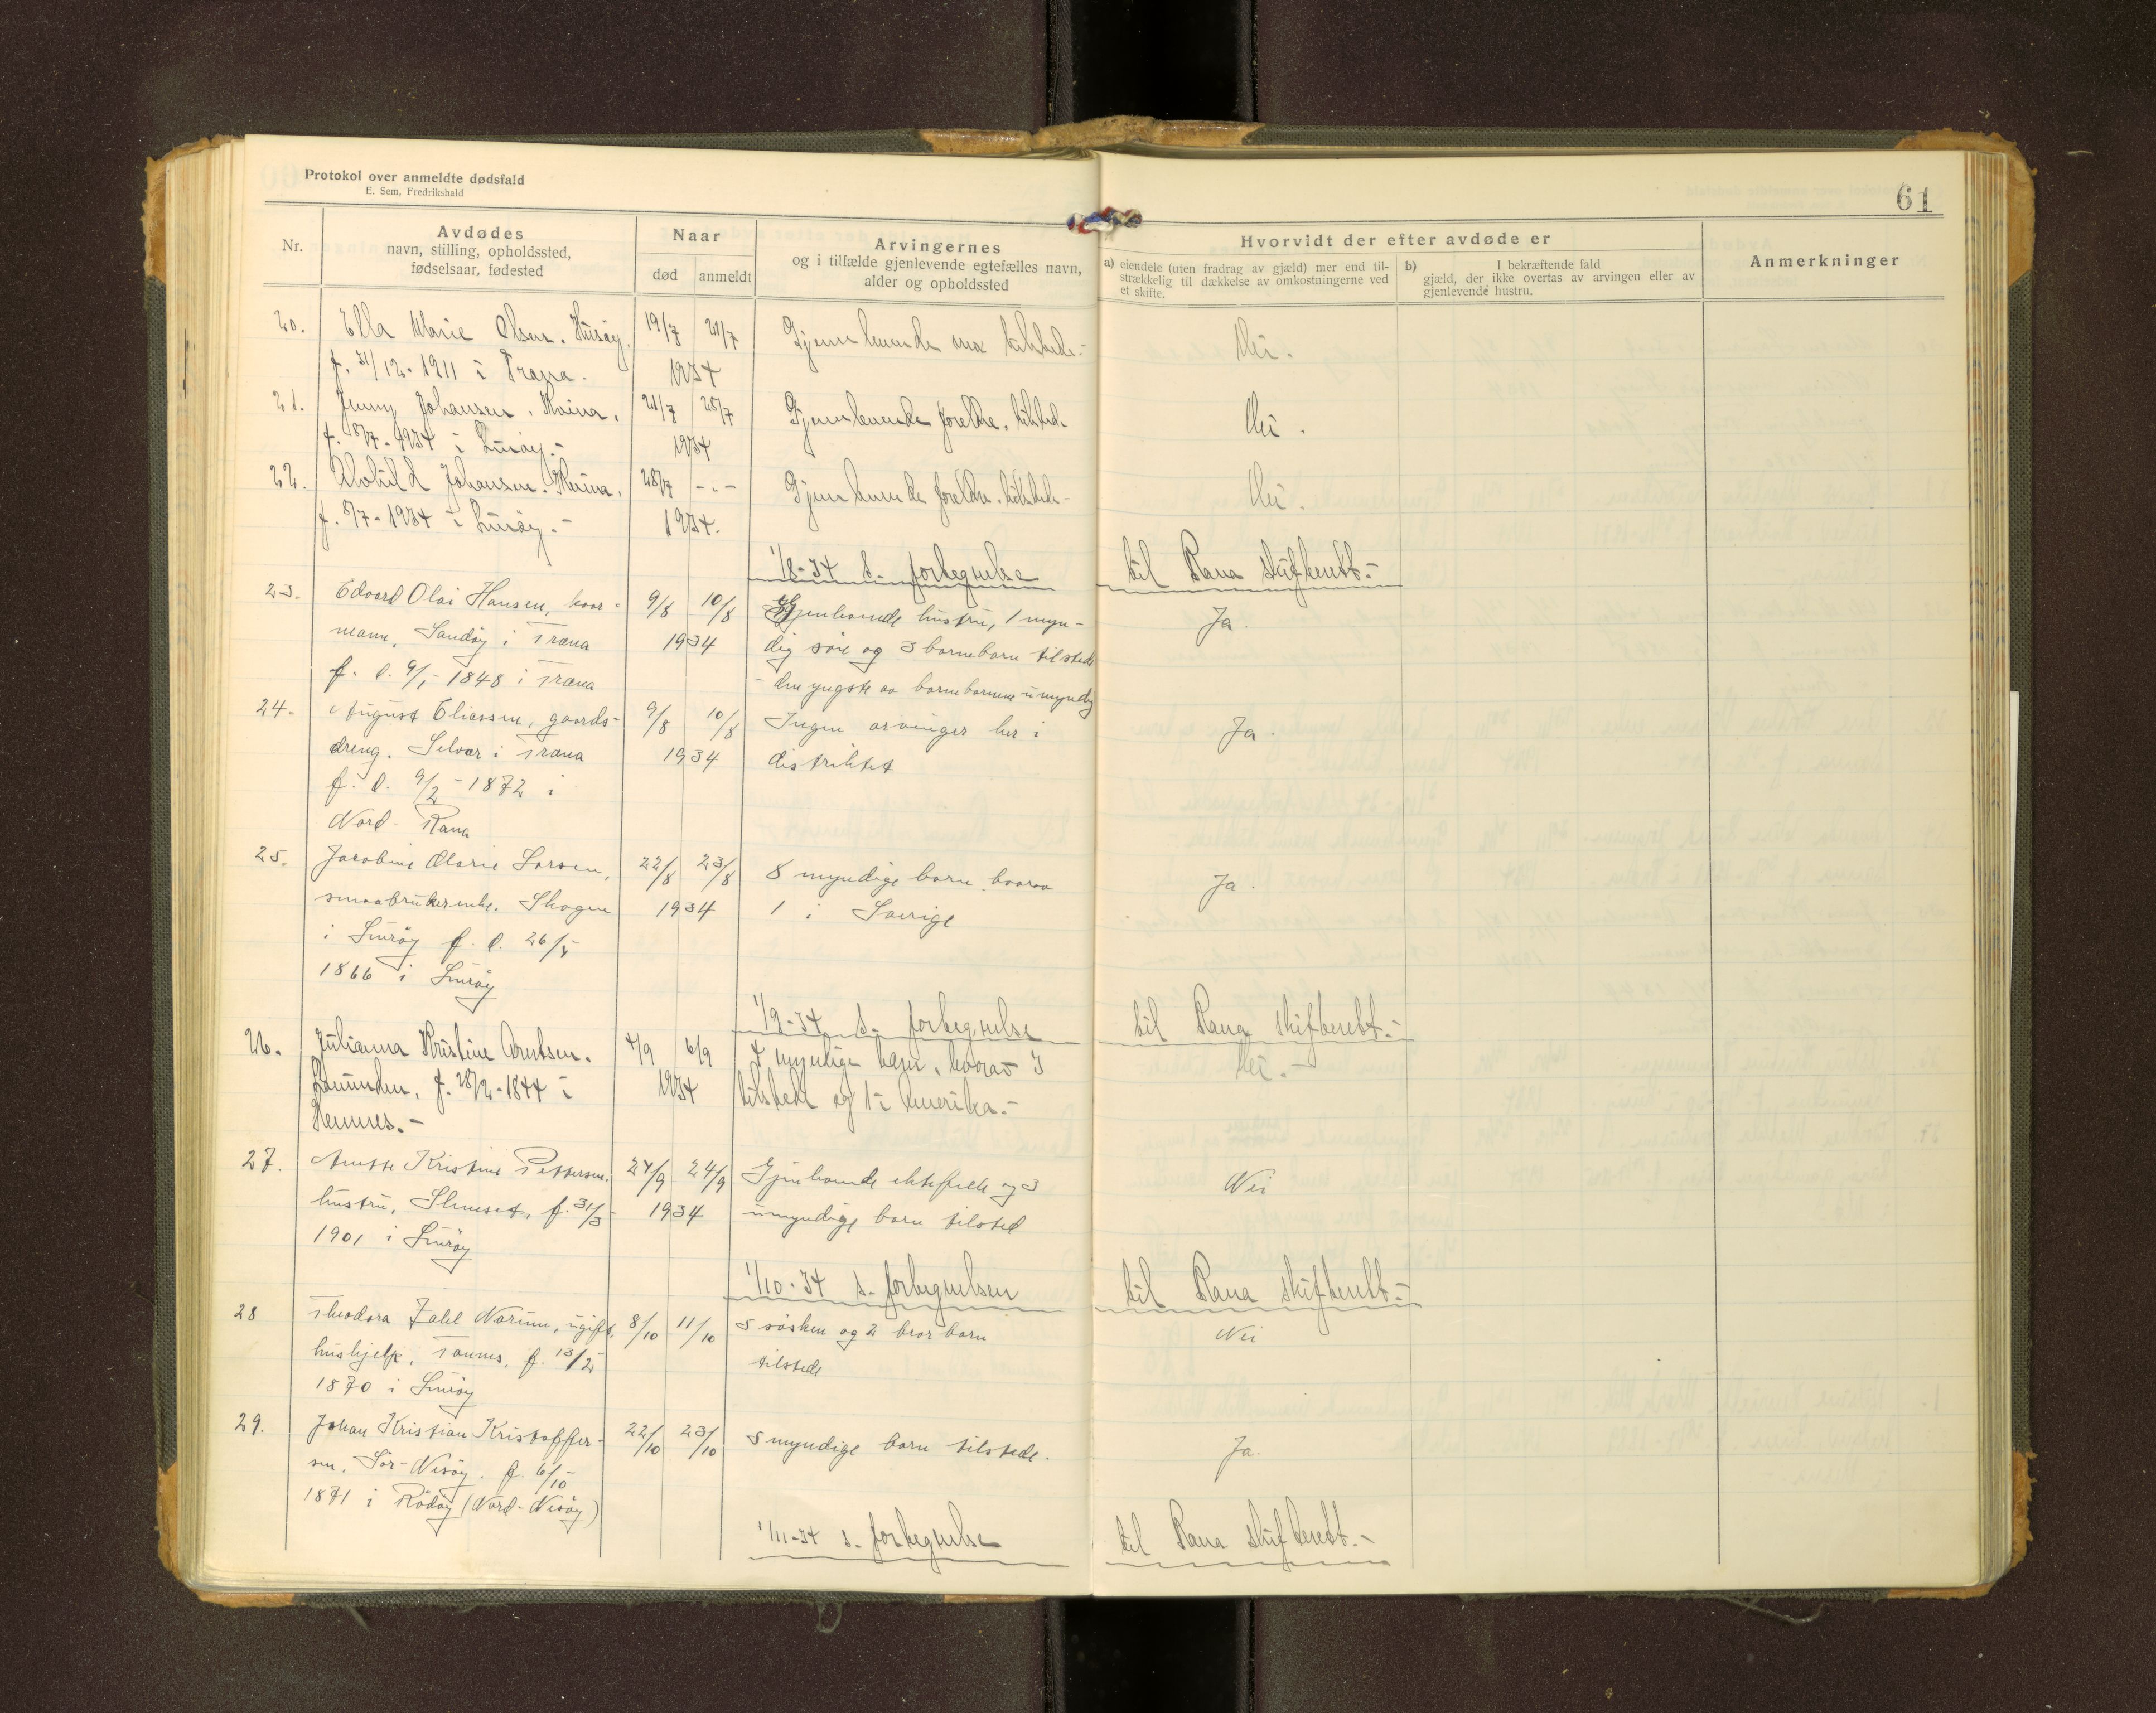 Protokol over anmeldte dødsfald
E. Sem, Fredrikshald
61
Nr.
Avdødes
navn, stilling, opholdssted,
fødselsaar, fødested
Naar
død
anmeldt
Arvingernes
og i tilfælde gjenlevende egtefælles navn,
alder og opholdssted
Hvorvidt der efter avdøde er
a) eiendele (uten fradrag av gjæld) mer end til-
strækkelig til dækkelse av omkostningerne ved
et skifte.
b) I bekræftende fald
gjæld, der ikke overtas av arvingen eller av
gjenlevende hustru.
Anmerkninger
20. Ella Marie Olsen. Husøy. 19/7 21/7 Gjenlevende mor tilstede.- Nei.
f. 31/12-1911 i Træna. 1934
21. Jenny Johansen, Kvina, 21/7 25/7 Gjenlevende foreldre, tilstede Nei.
f. 18/7-1934 i Lurøy.- 1934
22. Alvhild Johansen. Kvina, 28/7 -"- Gjenlevende foreldre, tilstede- Nei.
f. 5/7-1934 i Lurøy.- 1934.
1/8-34 s. fortegnelse til Rana skifterett.-
23. Edvard Olai Hansen, kaar- 9/8 10/8 Gjenlevende hustru, 1 myn- Ja.
mann, Sandøy i Træna 1934 dig søn og 3 barnebarn tilstede
f. d. 9/1-1848 i Træna - den yngste av barnebarnene umyndig
24. August Eliassen, gaards- 9/8 10/8 Ingen arvinger her i Ja.
dreng. Selvær i Træna 1934 distriktet
f. d. 9/2-1872 i
Nord-Rana
25. Jacobine Olarie Larsen, 22/8 23/8 8 myndige barn, hvorav Ja.
smaabrukerenke. Skogen 1934 1 i Sverige
i Lurøy f. d. 26/5
1866 i Lurøy
1/9-34 s. fortegnelse til Rana skifterett.-
26. Julianna Kristine Arntsen. 4/9 6/9 4 myndige barn, hvorav 3 Nei.-
f. 28/2-1844 i 1934 tilstede og 1 i Amerika.-
Hemnes.-
27. Anette Kristine Pettersen. 24/9 24/9 Gjenlevende ektefelle og 3 Nei
hustru, f. 31/3- 1934 umyndige barn tilsted
1901 i Lurøy
1/10-34 s. fortegnelsen til Rana skifterett.-
28 Theodora Zalel Norum, ugift, 8/10 11/10 5 søsken og 2 bror barn Nei
hushjelp, Tonnes, f. 13/2 tilstede
1870 i Lurøy
29. Johan Kristian Kristoffer- 22/10 23/10 5 myndige barn tilstede. Ja.
sen. Sør-Nesøy. f. 6/10-
1871 i Rødøy (Nord-Nesøy)
1/11-34 s. fortegnelse til Rana skifterett.-